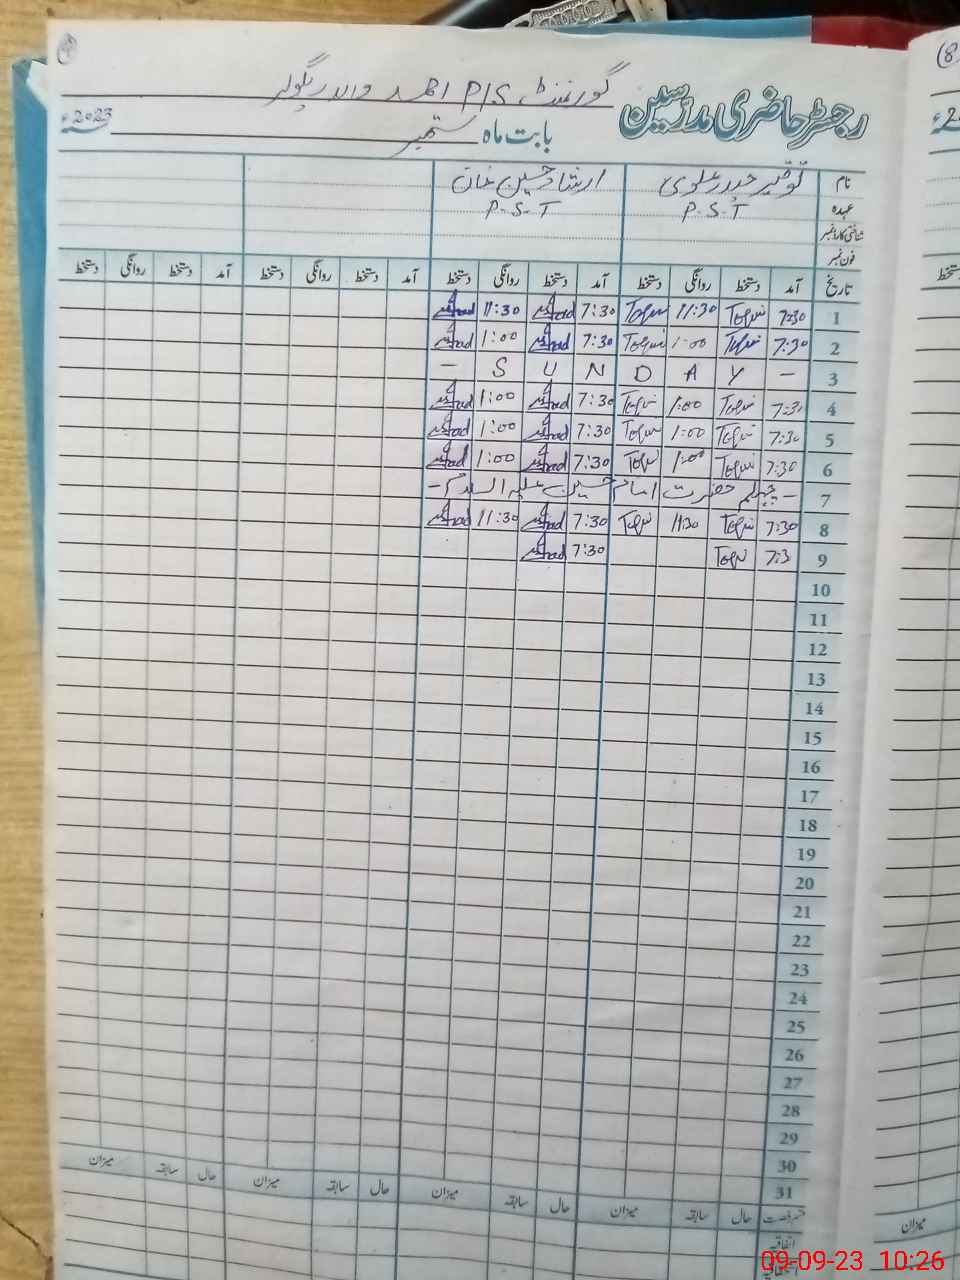 گورنمنٹ P/S احمد والہ ریگولر
رجسٹر حاضری مدرسین
بابت ماہ ستمبر ۲۰۲۳ء
نام توقیر حیدر علوی ارشاد حسین خان
عہدہ P.S.T P.S.T
شناختی کارڈ نمبر
فون نمبر
تاریخ آمد دستخط روانگی دستخط آمد دستخط روانگی دستخط آمد دستخط روانگی دستخط آمد دستخط روانگی دستخط
1 7:30 Toqir 11:30 Toqir 7:30 Irshad 11:30 Irshad
2 7:30 Toqir 1:00 Toqir 7:30 Irshad 1:00 Irshad
3 - S U N D A Y -
4 7:30 Toqir 1:00 Toqir 7:30 Irshad 1:00 Irshad
5 7:30 Toqir 1:00 Toqir 7:30 Irshad 1:00 Irshad
6 7:30 Toqir 1:00 Toqir 7:30 Irshad 1:00 Irshad
7 - چہلم حضرت امام حسین علیہ السلام -
8 7:30 Toqir 11:30 Toqir 7:30 Irshad 11:30 Irshad
9 7:3 Toqir 7:30 Irshad
10
11
12
13
14
15
16
17
18
19
20
21
22
23
24
25
26
27
28
29
30
31
قسم رخصت حال سابقہ میزان حال سابقہ میزان حال سابقہ میزان حال سابقہ میزان
اتفاقیہ
میزان
09-09-23 10:26